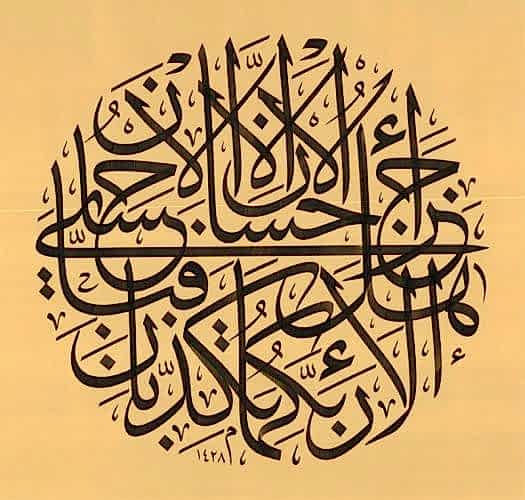 هل جزاء الإحسان إلا الإحسان
فبأي آلاء ربكما تكذبان
١٤٢٨